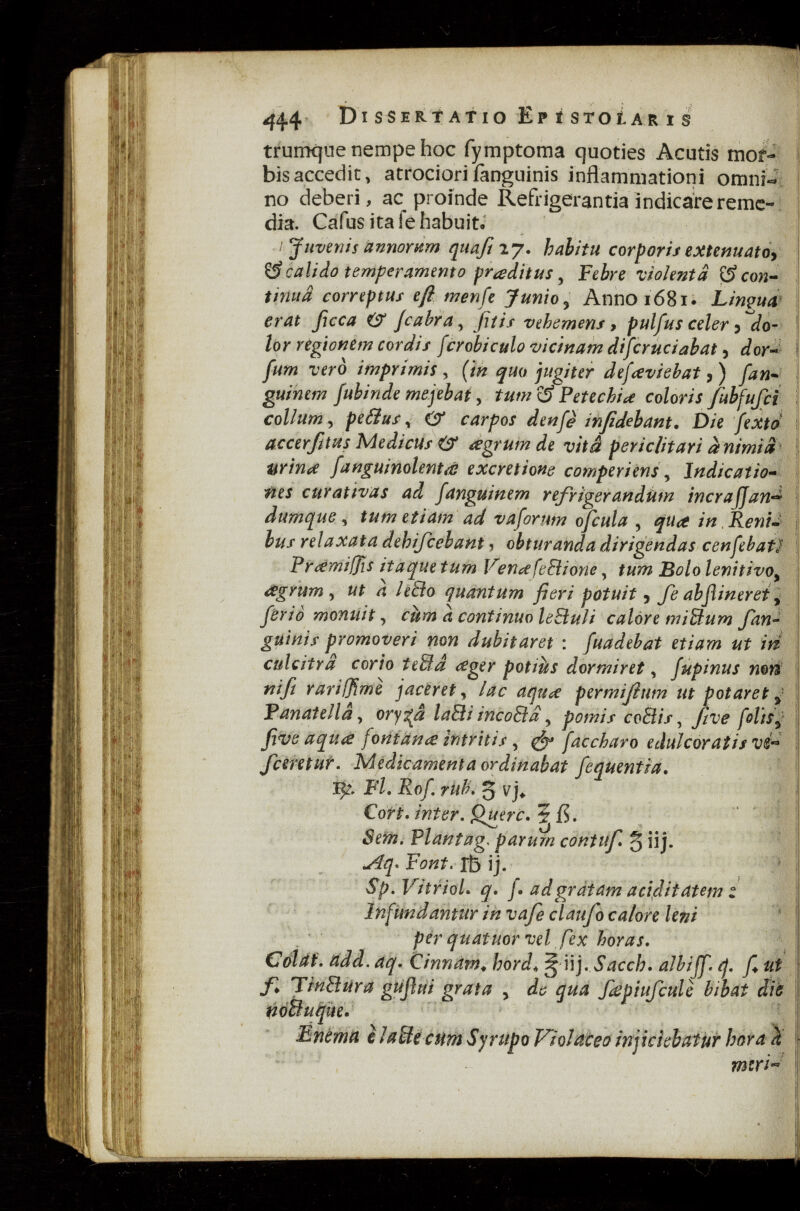 444 DISSERTATIO EPISTOLARIS
trumque nempe hoc ſymptoma quoties Acutis mor-
bis accedit, atrociori ſanguinis inflammationi omni-
no deberi, ac proinde Refrigerantia indicare reme-
dia. Caſus ita ſe habuit.
Juvenis annorum quaſi 27. habitu corporis extenuato,
& calido temperamento præditus, Febre violentâ & con-
tinuâ correptus eſt menſe Junio, Anno 1681. Lingua
erat ſicca & ſcabra, ſitis vehemens, pulſus celer, do-
lor regionem cordis ſcrobiculo vicinam diſcruciabat, dor-
ſum verò imprimis, (in quo jugiter deſæviebat,) ſan-
guinem ſubinde mejebat, tum & Petechiæ coloris ſubfuſci
collum, pectus, & carpos denſè inſidebant. Die ſexto
accerſitus Medicus & ægrum de vitâ periclitari à nimiâ
urinæ ſanguinolentæ excretione comperiens, Indicatio-
nes curativas ad ſanguinem refrigerandum incraſſan-
dumque, tum etiam ad vaſorum oſcula, quæ in Reni-
bus relaxata dehiſcebant, obturanda dirigendas cenſebat.
Præmiſſis itaque tum Venæſectione, tum Bolo lenitivo,
ægrum, ut à lecto quantum fieri potuit, ſe abſtineret,
ſeriò monuit, cùm à continuo lectuli calore mictum ſan-
guinis promoveri non dubitaret : ſuadebat etiam ut in
culcitrâ corio tectâ æger potiùs dormiret, ſupinus non
niſi rariſſimè jaceret, lac aquæ permiſtum ut potaret,
Panatellâ, oryzâ lacti incoctâ, pomis coctis, ſive ſolis,
ſive aquæ fontanæ intritis, & ſaccharo edulcoratis ve-
ſceretur. Medicamenta ordinabat ſequentia.
℞. Fl. Roſ. rub. ʒ vj.
Cort. inter. Querc. ℥ ß.
Sem. Plantag. parum contuſ. ʒ iij.
Aq. Font. ℔ ij.
Sp. Vitriol. q. ſ. ad gratam aciditatem :
Infundantur in vaſe clauſo calore leni
per quatuor vel ſex horas.
Colat. add. aq. Cinnam. hord. ℥ iij. Sacch. albiſſ. q. ſ. ut
f. Tinctura guſtui grata, de qua ſæpiuſculè bibat die
noctuque.
Enema è lacte cum Syrupo Violaceo injiciebatur hora à
meri-